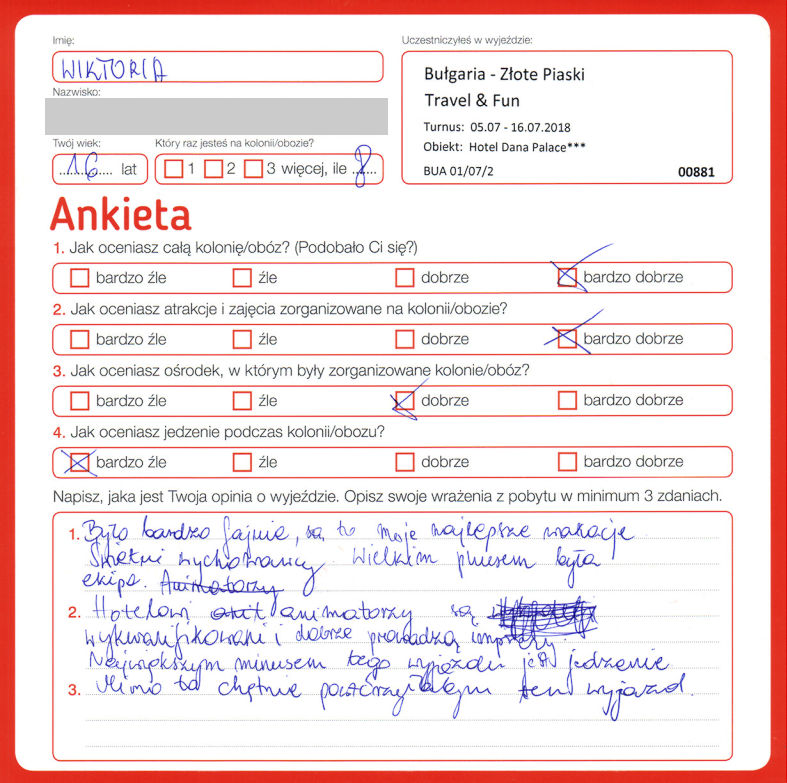 Imię:
WIKTORIA
Nazwisko:
Twój wiek:
16 lat
Który raz jesteś na kolonii/obozie?
1 2 3 więcej, ile 8
Uczestniczyłeś w wyjeździe:
Bułgaria - Złote Piaski
Travel & Fun
Turnus: 05.07 - 16.07.2018
Obiekt: Hotel Dana Palace***
BUA 01/07/2 00881
Ankieta
1. Jak oceniasz całą kolonię/obóz? (Podobało Ci się?)
bardzo źle źle dobrze bardzo dobrze
2. Jak oceniasz atrakcje i zajęcia zorganizowane na kolonii/obozie?
bardzo źle źle dobrze bardzo dobrze
3. Jak oceniasz ośrodek, w którym były zorganizowane kolonie/obóz?
bardzo źle źle dobrze bardzo dobrze
4. Jak oceniasz jedzenie podczas kolonii/obozu?
bardzo źle źle dobrze bardzo dobrze
Napisz, jaka jest Twoja opinia o wyjeździe. Opisz swoje wrażenia z pobytu w minimum 3 zdaniach.
1. Było bardzo fajnie, są to moje najlepsze wakacje
Świetni wychowawcy. Wielkim plusem była
ekipa. Animatorzy
2. Hotelowi animatorzy są
wykwalifikowani i dobrze prowadzą imprezy
Największym minusem tego wyjazdu jest jedzenie
3. Mimo to chętnie powtórzyłabym ten wyjazd.